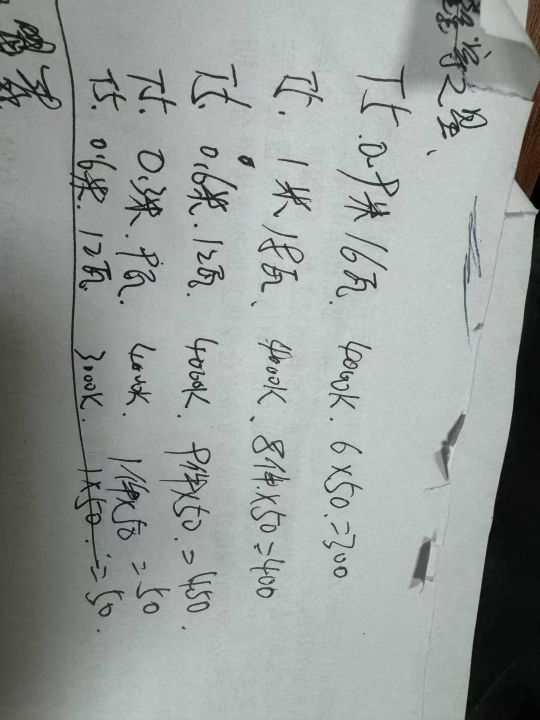 之星、
T5. 0.9米 16瓦. 4000K. 6×50.=300
T5. 1米 18瓦、 4000K. 8件×50=400
T5. 0.6米. 12瓦. 4000K. 9件×50.=450.
T5. 0.3米. 9瓦. 4000K. 1件×50 =50
T5. 0.6米. 12瓦. 3000K. 1×50. =50.